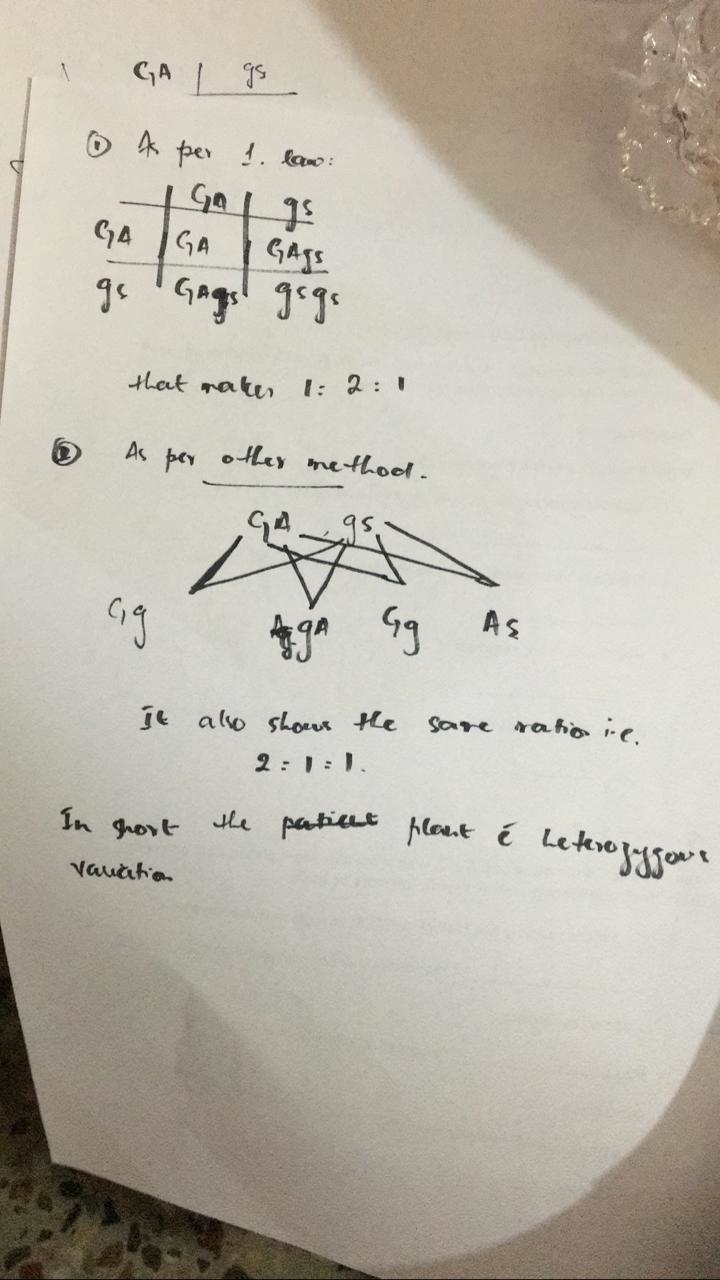 GA | gs
① As per 1. law:
GA | gs
GA | GA | GAgs
gs | GAgs | gsgs
that makes 1: 2 : 1
② As per other method.
GA gs
Gg gA Gg As
It also shows the same ratio i.e.
2 : 1 : 1.
In short the plant c̄ heterozygous
variation